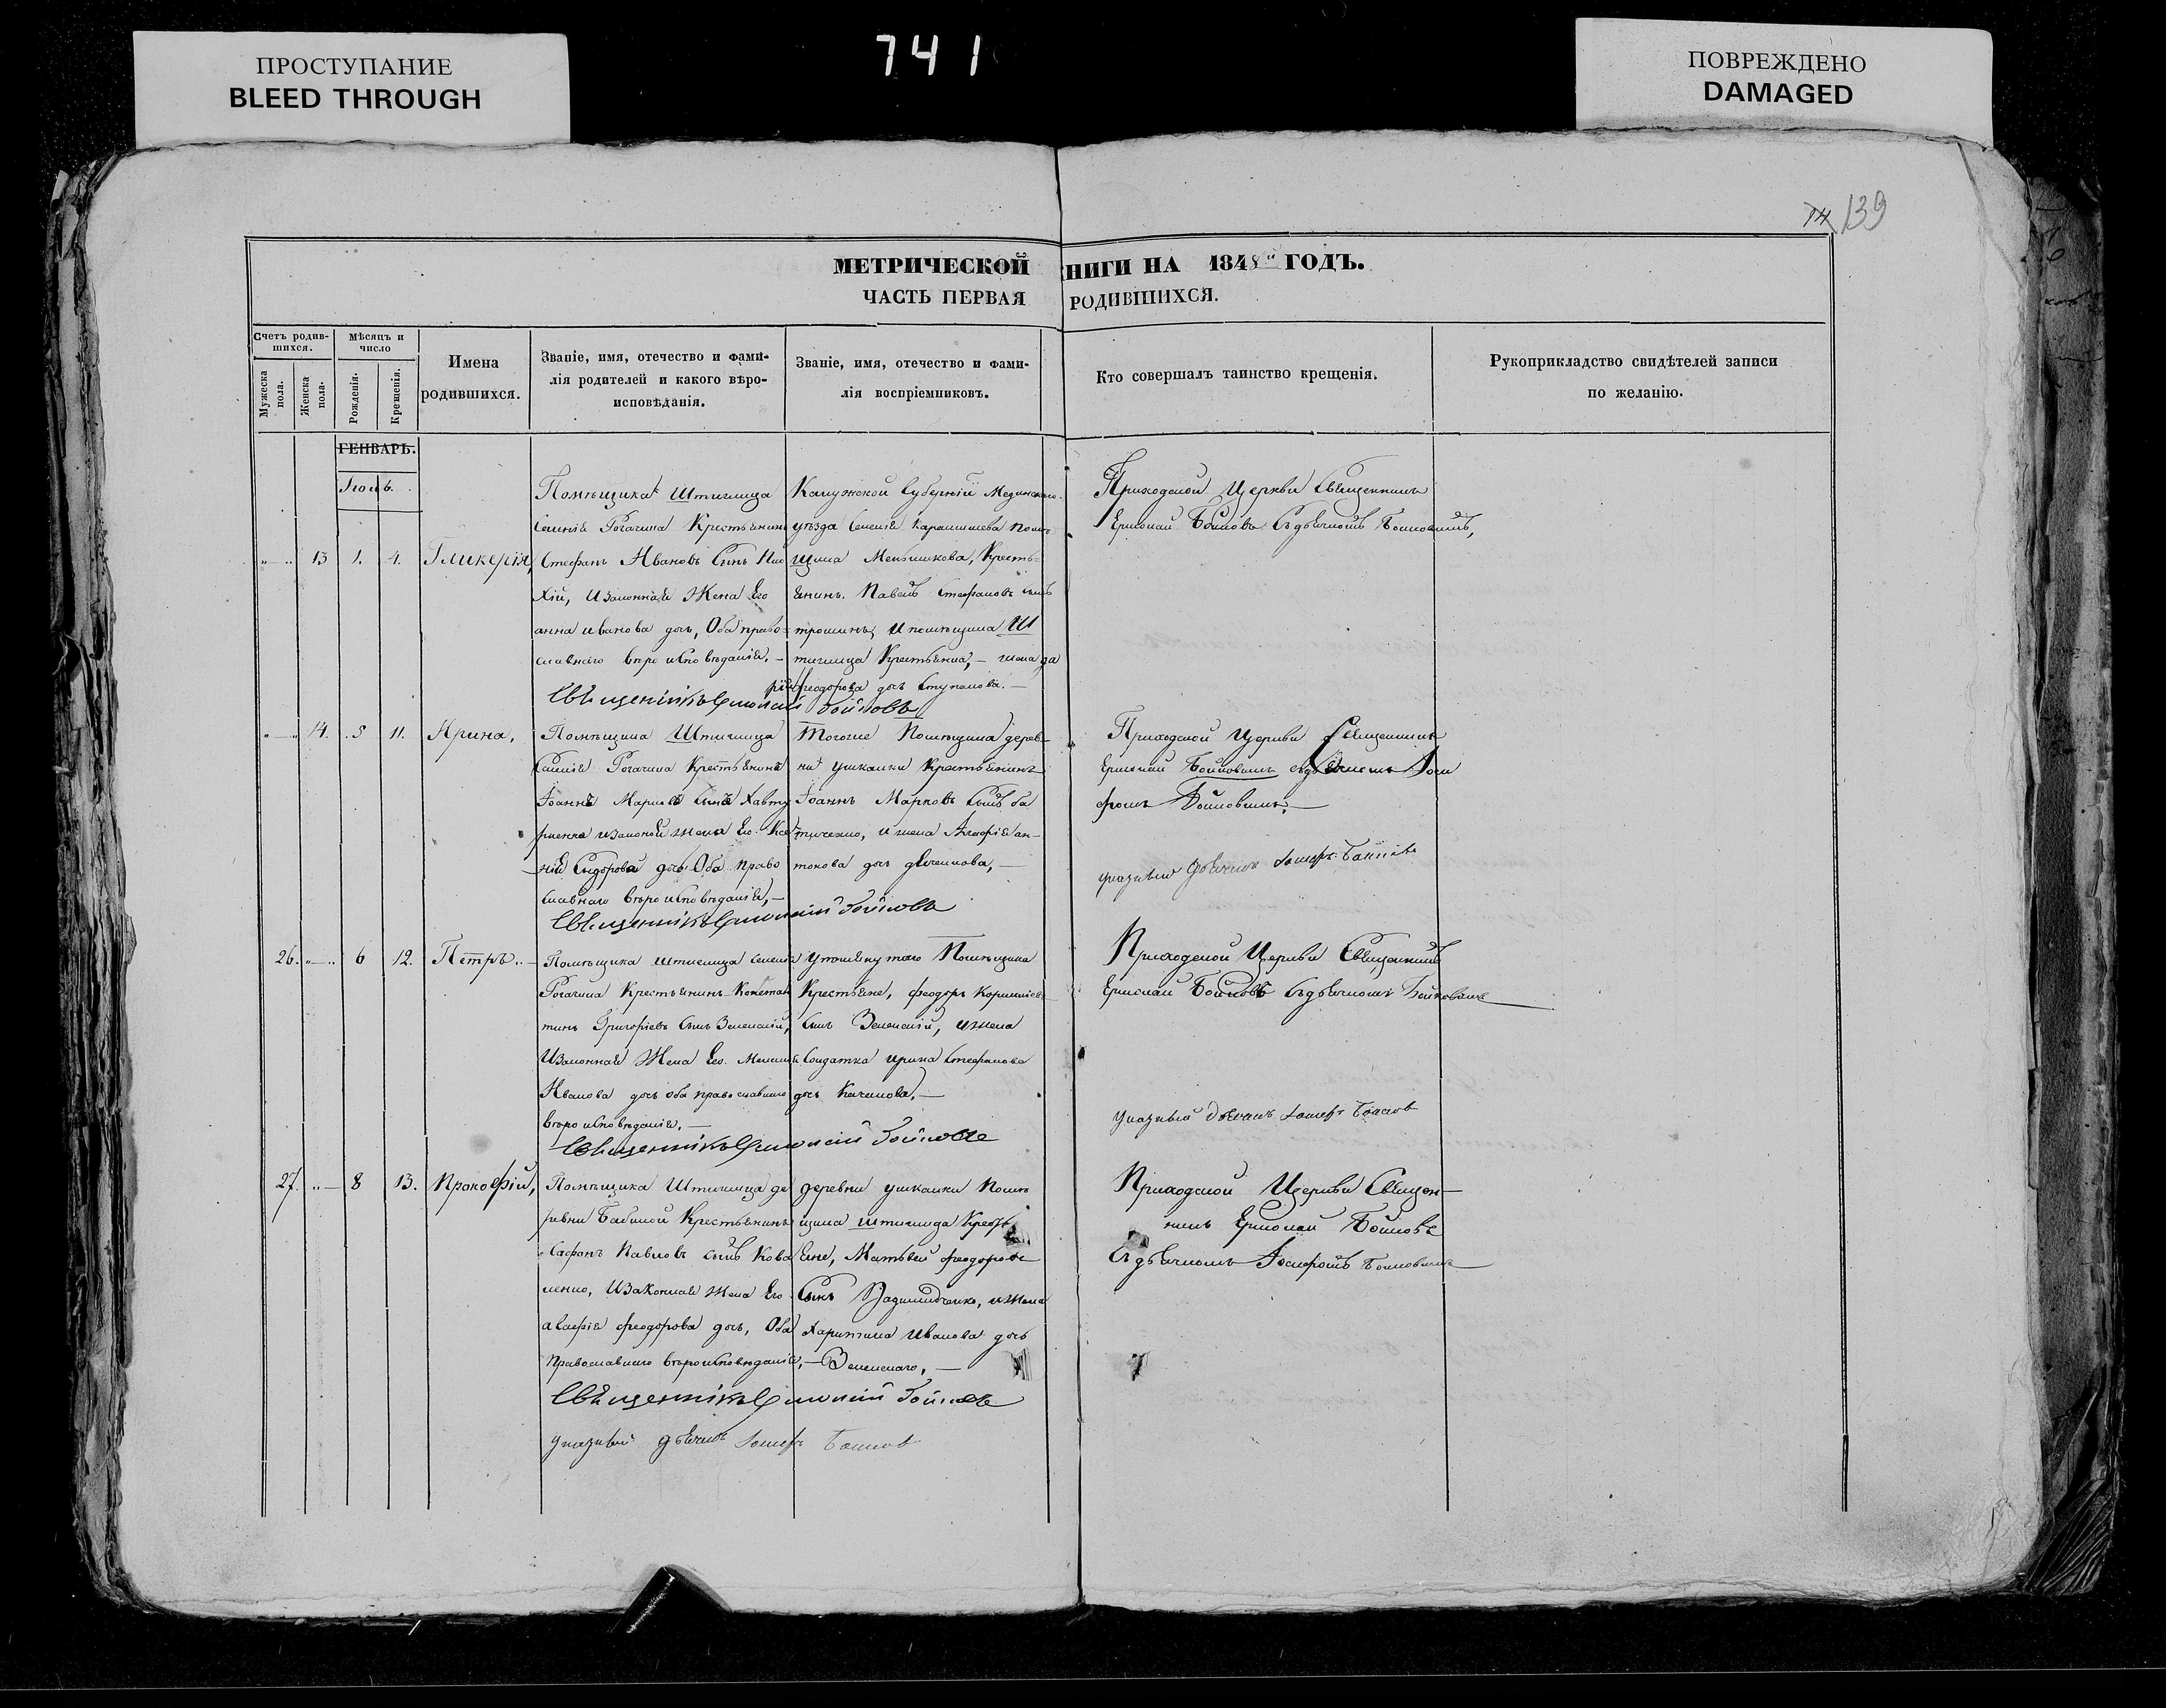 ПРОСТУПАНИЕ
BLEED THROUGH
741
ПОВРЕЖДЕНО
DAMAGED
14 139
МЕТРИЧЕСКОЙ КНИГИ НА 1848й ГОДЪ.
ЧАСТЬ ПЕРВАЯ РОДИВШИХСЯ.
Счетъ родив-
шихся.
Мужеска
пола.
Женска
пола.
Мѣсяцъ и
число
Рожденія.
Крещенія.
Имена
родившихся.
Званіе, имя, отечество и фами-
лія родителей и какого вѣро-
исповѣданія.
Званіе, имя, отечество и фами-
лія воспріемниковъ.
Кто совершалъ таинство крещенія.
Рукоприкладство свидѣтелей записи
по желанію.
ГЕНВАРЬ.
Іюль.
13 1. 4. Гликерія,
Помѣщика Штиглица
Селенія Рогачика Крестьянинъ
Стефанъ Ивановъ Сынъ
хій, Изаконная Жена Его
анна иванова дочь, Оба право-
славнаго вѣро исповѣданія.
Священникъ Ермолай Бойковъ
Калужской Губерніи Мединскаго
уѣзда Селенія помѣ
щика Меншикова, Кресть-
янинъ Павелъ Стефановъ сынъ
трошинъ, И помѣщика Ш
тиглица Крестьянка, жена да
рія феодорова дочь
Приходской Церкви Священникъ
Ермолай Бойковъ Съ дьячкомъ Бойковымъ,
14. 5 11. Ирина,
Помѣщика Штиглица
Селенія Рогачика Крестьянинъ
Іоаннъ Марковъ Сынъ Хавту
изаконная жена Его Ксе
нія Сидорова дочь Оба право
славнаго вѣро исповѣданія,
Священникъ Ермолай Бойковъ
Тогоже Помѣщика дерев
ни ушкалки Крестьянинъ
Іоаннъ Марковъ Сынъ
и жена Агафія ан-
тонова дочь
Приходской Церкви Священникъ
Ермолай Бойковымъ съ дьячкомъ Іоси
фомъ Бойковымъ.
указный дьячокъ Іосифъ Бойковъ
26. 6 12. Петръ.
Помѣщика штиглица селенія
Рогачика Крестьянинъ Констан
тинъ Григоріевъ Сынъ Зеленскій,
Изаконная Жена Его
Иванова дочь оба православнаго
вѣро исповѣданія.
Священникъ Ермолай Бойковъ
Помѣщика
Крестьяне, феодоръ
Сынъ Зеленскій, ижена
Солдатка ирина Стефанова
дочь
Приходской Церкви Священникъ
Ермолай Бойковъ Съ дьячкомъ Бойковымъ
указный дьячокъ Іосифъ Бойковъ
27. 8 13. Прокофій,
Помѣщика Штиглица де
ревни Бабиной Крестьянинъ
Павловъ сынъ Кова
ленко, Изаконная Жена Его
феодорова дочь, Оба
Православнаго вѣроисповѣданія.
Священникъ Ермолай Бойковъ
указный дьячокъ Іосифъ Бойковъ
деревни ушкалки Помѣ
щика штиглица Кресть
яне, Матвей феодоровъ
Сынъ ижена
Харитина Иванова дочь
Зеленскаго,
Приходской Церкви Священ-
никъ Ермолай Бойковъ
Съ дьячкомъ Іосифомъ Бойковымъ